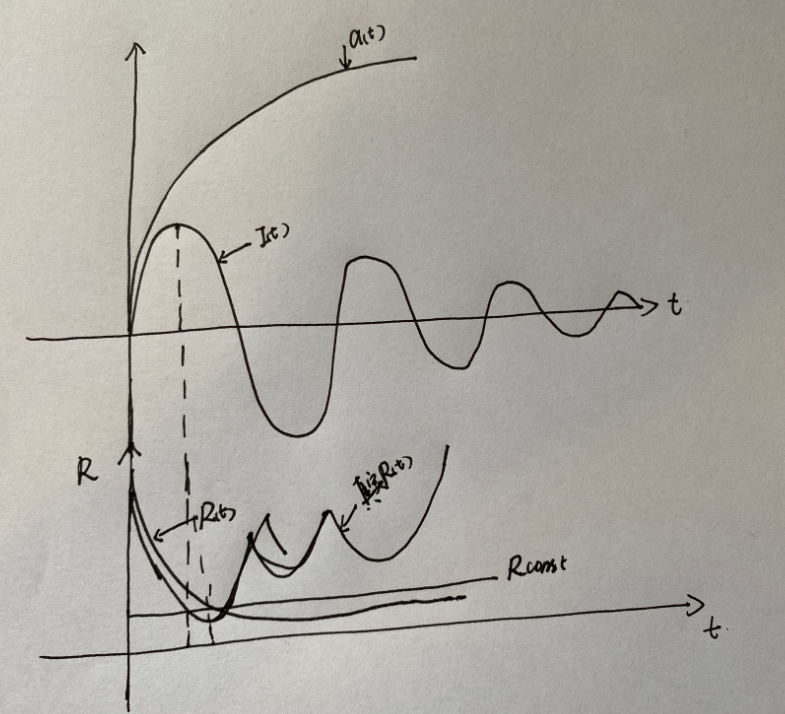 a(t)
I(t)
t
R
R(t)
真实R(t)
Rconst
t